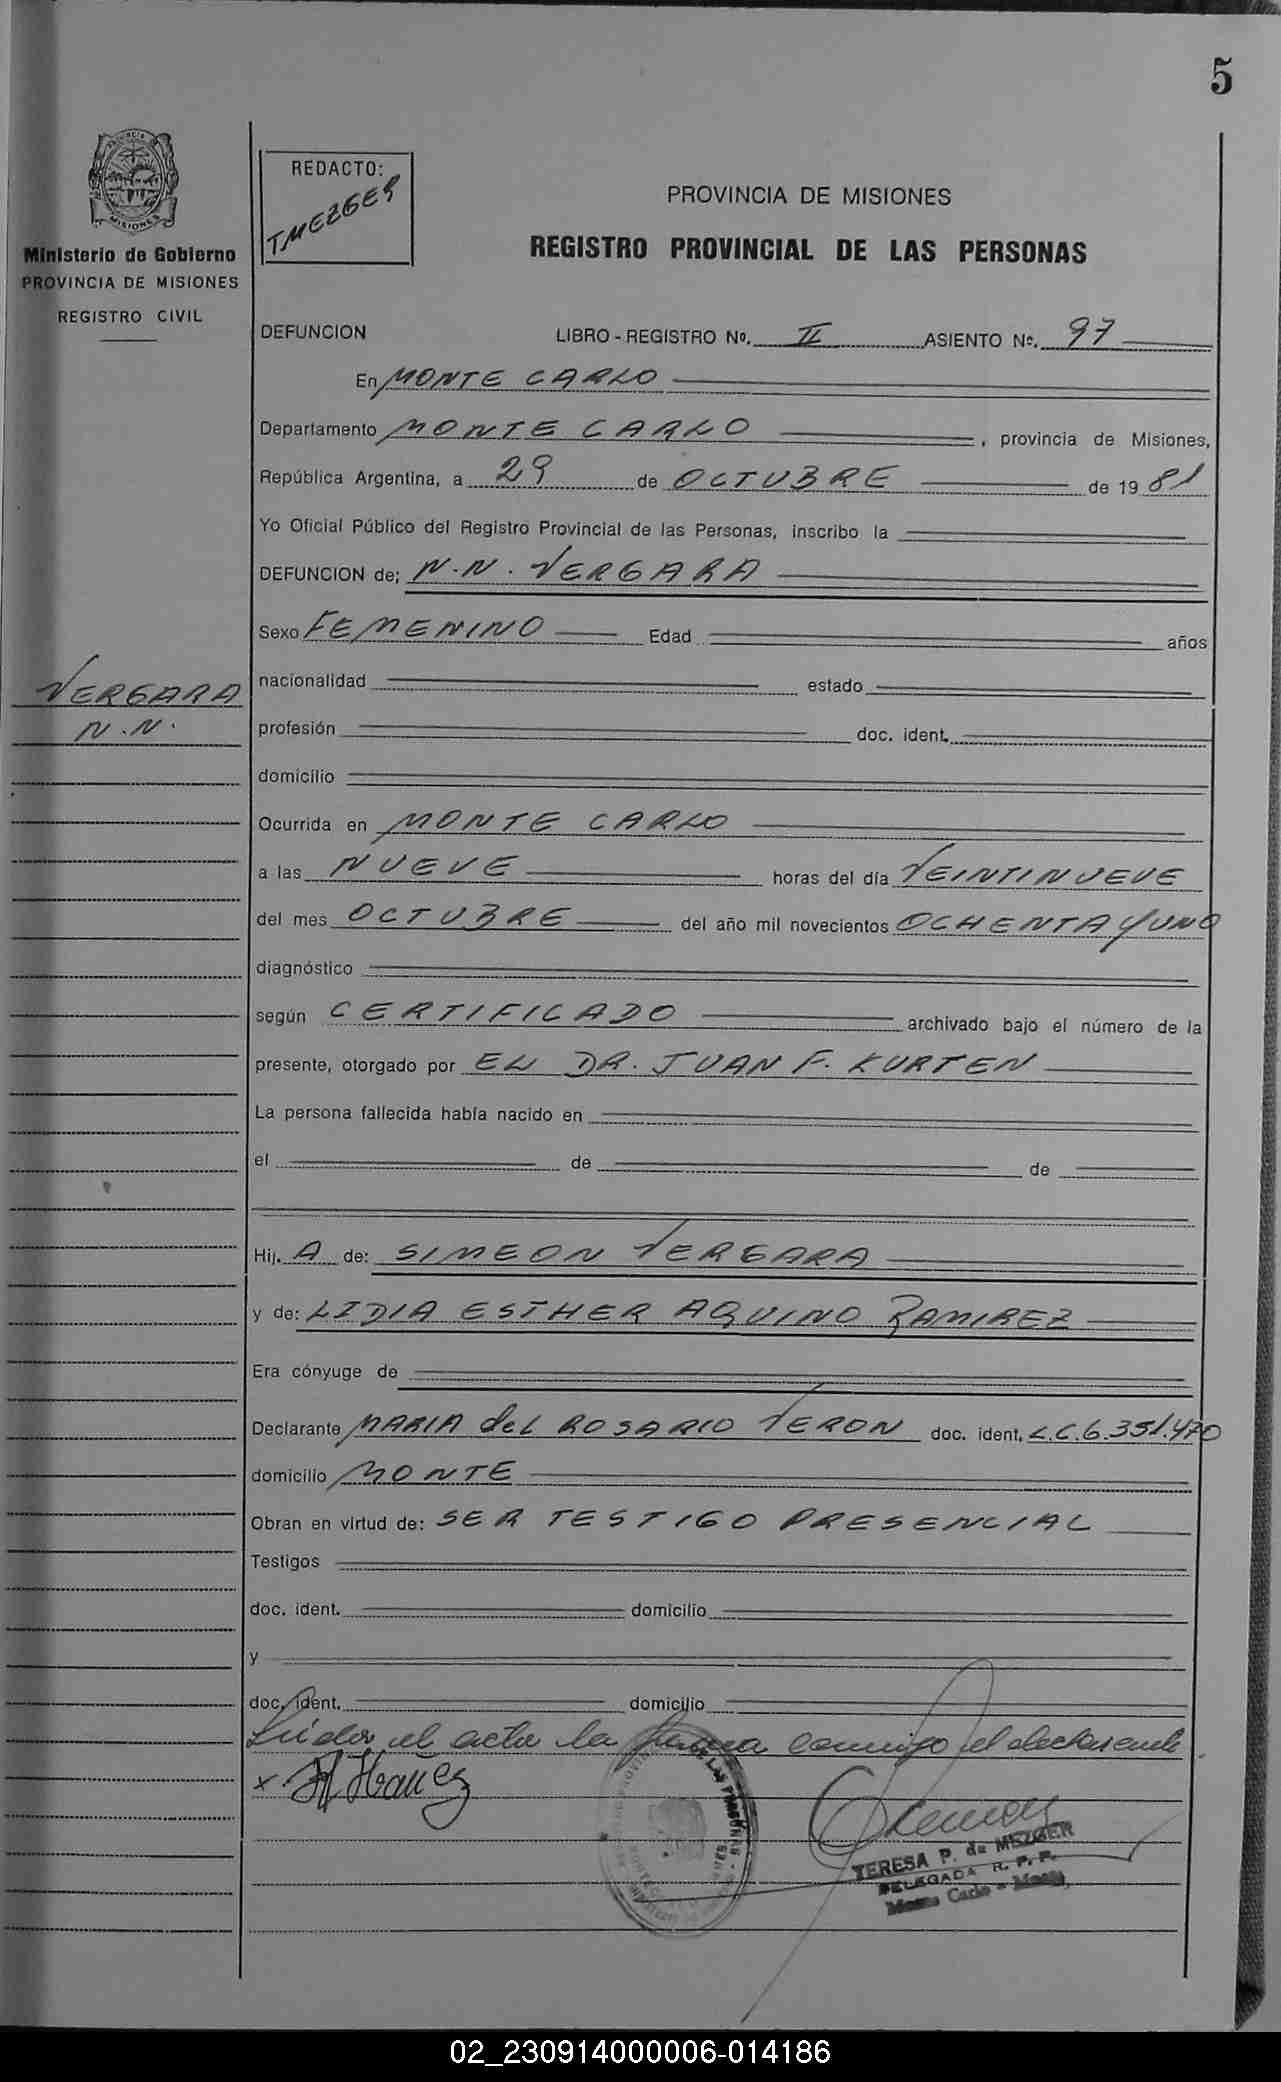 5
PROVINCIA
MISIONES
Ministerio de Gobierno
PROVINCIA DE MISIONES
REGISTRO CIVIL
REDACTO:
TMEZGER
PROVINCIA DE MISIONES
REGISTRO PROVINCIAL DE LAS PERSONAS
DEFUNCION LIBRO - REGISTRO Nº. II ASIENTO Nº. 97
En MONTE CARLO
Departamento MONTE CARLO , provincia de Misiones,
República Argentina, a 29 de OCTUBRE de 19 81
Yo Oficial Público del Registro Provincial de las Personas, inscribo la
DEFUNCION de; N.N. VERGARA
Sexo FEMENINO Edad años
VERGARA
N.N.
nacionalidad estado
profesión doc. ident.
domicilio
Ocurrida en MONTE CARLO
a las NUEVE horas del día VEINTINUEVE
del mes OCTUBRE del año mil novecientos OCHENTA Y UNO
diagnóstico
según CERTIFICADO archivado bajo el número de la
presente, otorgado por EL DR. JUAN F. KURTEN
La persona fallecida había nacido en
el de de
Hij. A de: SIMEON VERGARA
y de: LIDIA ESTHER AQUINO RAMIREZ
Era cónyuge de
Declarante MARIA del ROSARIO VERON doc. ident. L.C.6.351.470
domicilio MONTE
Obran en virtud de: SER TESTIGO PRESENCIAL
Testigos
doc. ident. domicilio
y
doc. ident. domicilio
Leída el acta la firma conmigo el declarante.
x
TERESA P. de MEZGER
DELEGADA R. P. P.
Monte Carlo - Mnes,
02_230914000006-014186